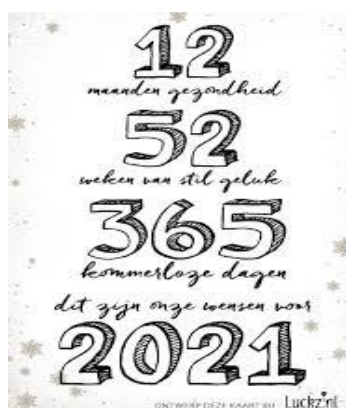 12
maanden gezondheid
52
weken van stil geluk
365
kommerloze dagen
dit zijn onze wensen voor
2021
ONTWERP DEZE KAART BIJ Luckz.nl